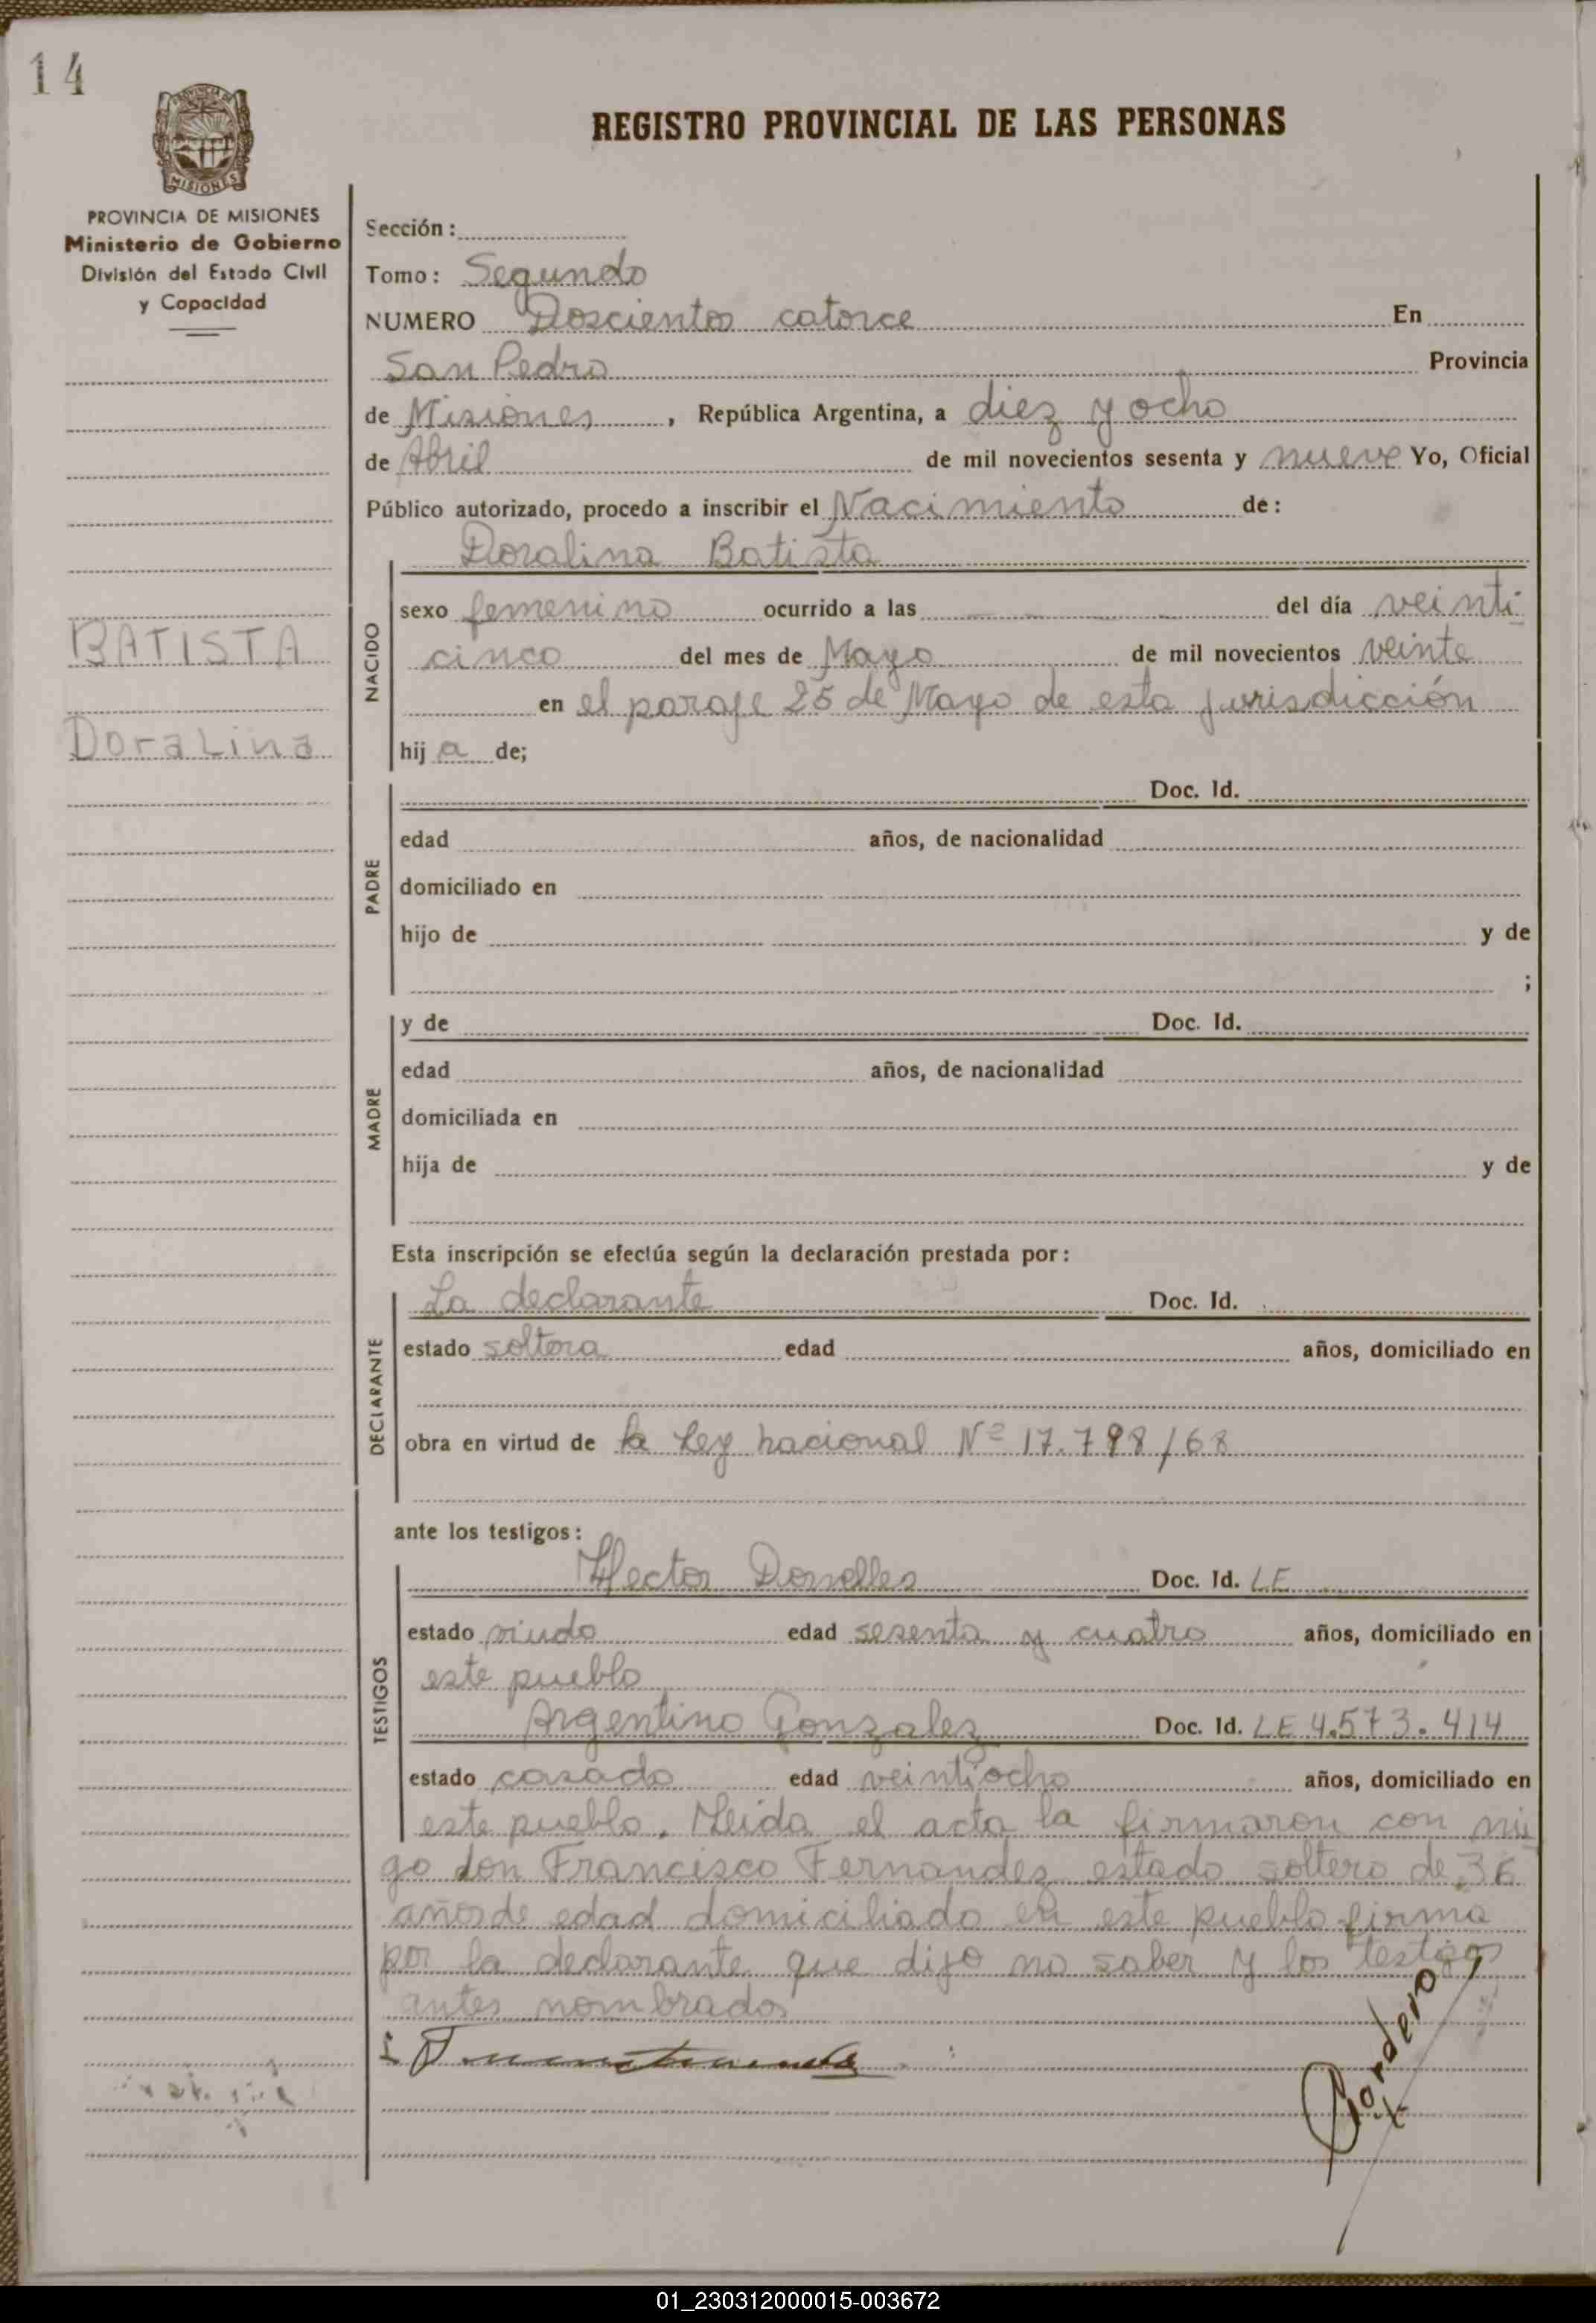 14
PROVINCIA DE MISIONES
REGISTRO PROVINCIAL DE LAS PERSONAS
PROVINCIA DE MISIONES
Ministerio de Gobierno
División del Estado Civil
y Capacidad
Sección:
Tomo: Segundo
NUMERO Doscientos catorce En
San Pedro Provincia
de Misiones, República Argentina, a diez y ocho
de Abril de mil novecientos sesenta y nueve Yo, Oficial
Público autorizado, procedo a inscribir el Nacimiento de:
Doralina Batista
BATISTA
DoraLina
NACIDO
sexo femenino ocurrido a las del día veinti
cinco del mes de Mayo de mil novecientos veinte
en el paraje 25 de Mayo de esta jurisdicción
hij a de;
PADRE
Doc. Id.
edad años, de nacionalidad
domiciliado en
hijo de y de
;
MADRE
y de Doc. Id.
edad años, de nacionalidad
domiciliada en
hija de y de
Esta inscripción se efectúa según la declaración prestada por:
DECLARANTE
La declarante Doc. Id.
estado soltera edad años, domiciliado en
obra en virtud de la Ley nacional Nº 17.798/68
ante los testigos:
TESTIGOS
Hector Dornelles Doc. Id. LE
estado viudo edad sesenta y cuatro años, domiciliado en
este pueblo
Argentino Gonzalez Doc. Id. LE 4.573.414
estado casado edad veintiocho años, domiciliado en
este pueblo. Leida el acta la firmaron con mi
go don Francisco Fernandez estado soltero de 36
años de edad domiciliado en este pueblo firma
por la declarante que dijo no saber y los testigos
antes nombrados
Cordero
01_230312000015-003672